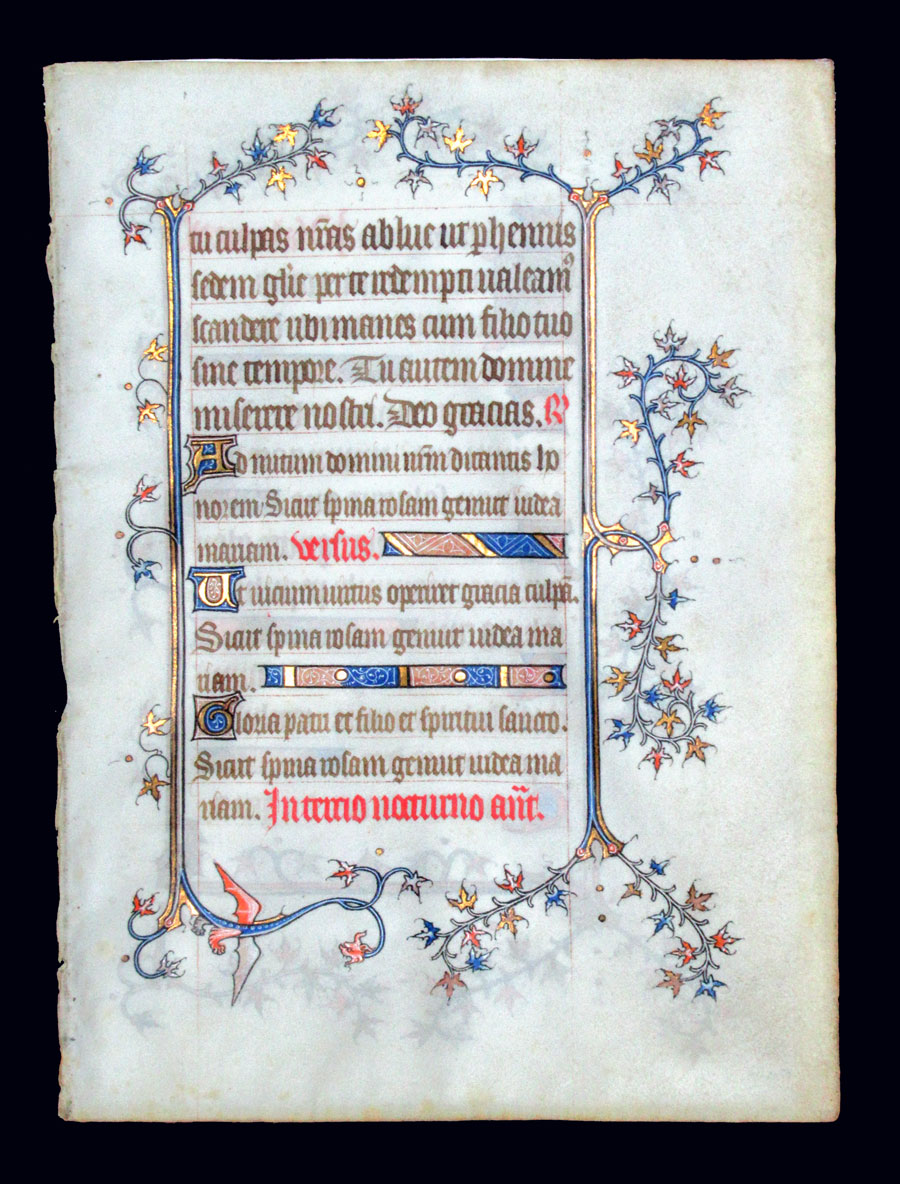 tu culpas nr̃as ablue ut ꝑhennis
sedem glẽ per te redempti ualeamꝰ
scandere ubi manes cum filio tuo
sine tempore. Tu autem domine
miserere nostri. Deo gracias. ℟
Ad nutum domini nr̃m ditantis ho
norem Sicut spina rosam genuit iudea
mariam. versus.
Ut uicium uirtus operiret gracia culpã.
Sicut spina rosam genuit iudea ma
riam.
Gloria patri et filio et spiritui sancto.
Sicut spina rosam genuit iudea ma
riam. In tercio nocturno añt.